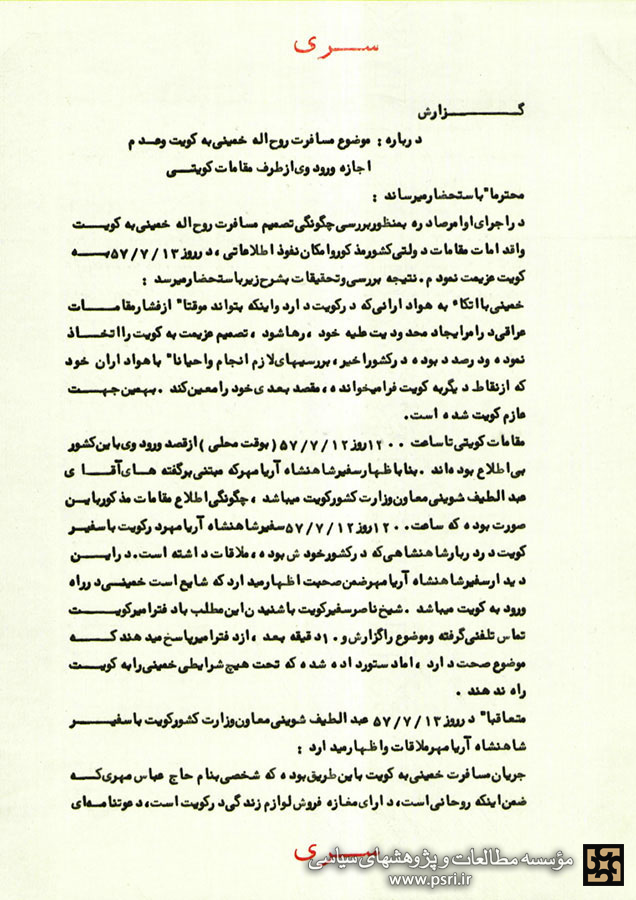 سری
گزارش
درباره : موضوع مسافرت روح اله خمینی به کویت وعدم
اجازه ورود وی از طرف مقامات کویتی
محترما" باستحضار میرساند :
در اجرای اوامر صادره بمنظور بررسی چگونگی تصمیم مسافرت روح اله خمینی به کویت
واقدامات مقامات دولتی کشور مذکور و امکان نفوذ اطلاعاتی ، در روز ۵۷/۷/۱۳ به
کویت عزیمت نمودم . نتیجه بررسی و تحقیقات بشرح زیر باستحضار میرسد :
خمینی با اتکاء به هوادارانی که در کویت دارد و اینکه بتواند موقتا" از فشار مقامات
عراقی در امر ایجاد محدودیت علیه خود ، رها شود ، تصمیم عزیمت به کویت را اتخاذ
نموده و درصدد بوده در کشور اخیر ، بررسیهای لازم انجام و احیانا" با هواداران خود
که از نقاط دیگر به کویت فرا میخوانده ، مقصد بعدی خود را معین کند . بهمین جهت
عازم کویت شده است .
مقامات کویتی تا ساعت ۱۲۰۰ روز ۵۷/۷/۱۲ ( بوقت محلی ) از قصد ورود وی باین کشور
بی اطلاع بوده اند . بنا باظهار سفیر شاهنشاه آریامهر که مبتنی بر گفته های آقای
عبد الطیف شوینی معاون وزارت کشور کویت میباشد ، چگونگی اطلاع مقامات مذکور باین
صورت بوده که ساعت ۱۲۰۰ روز ۵۷/۷/۱۲ سفیر شاهنشاه آریامهر در کویت با سفیر
کویت در دربار شاهنشاهی که در کشور خودش بوده ، ملاقات داشته است . در این
دیدار سفیر شاهنشاه آریامهر ضمن صحبت اظهار میدارد که شایع است خمینی در راه
ورود به کویت میباشد . شیخ ناصر سفیر کویت با شنیدن این مطلب با دفتر امیر کویت
تماس تلفنی گرفته و موضوع را گزارش و ۱۰ دقیقه بعد ، از دفتر امیر پاسخ میدهند که
موضوع صحت دارد ، اما دستور داده شده که تحت هیچ شرایطی خمینی را به کویت
راه ندهند .
متعاقبا" در روز ۵۷/۷/۱۳ عبد الطیف شوینی معاون وزارت کشور کویت با سفیر
شاهنشاه آریامهر ملاقات و اظهار میدارد :
جریان مسافرت خمینی به کویت باین طریق بوده که شخصی بنام حاج عباس مهری که
ضمن اینکه روحانی است ، دارای مغازه فروش لوازم زندگی در کویت است ، دعوتنامه ای
سری
مؤسسه مطالعات و پژوهشهای سیاسی
www.psri.ir